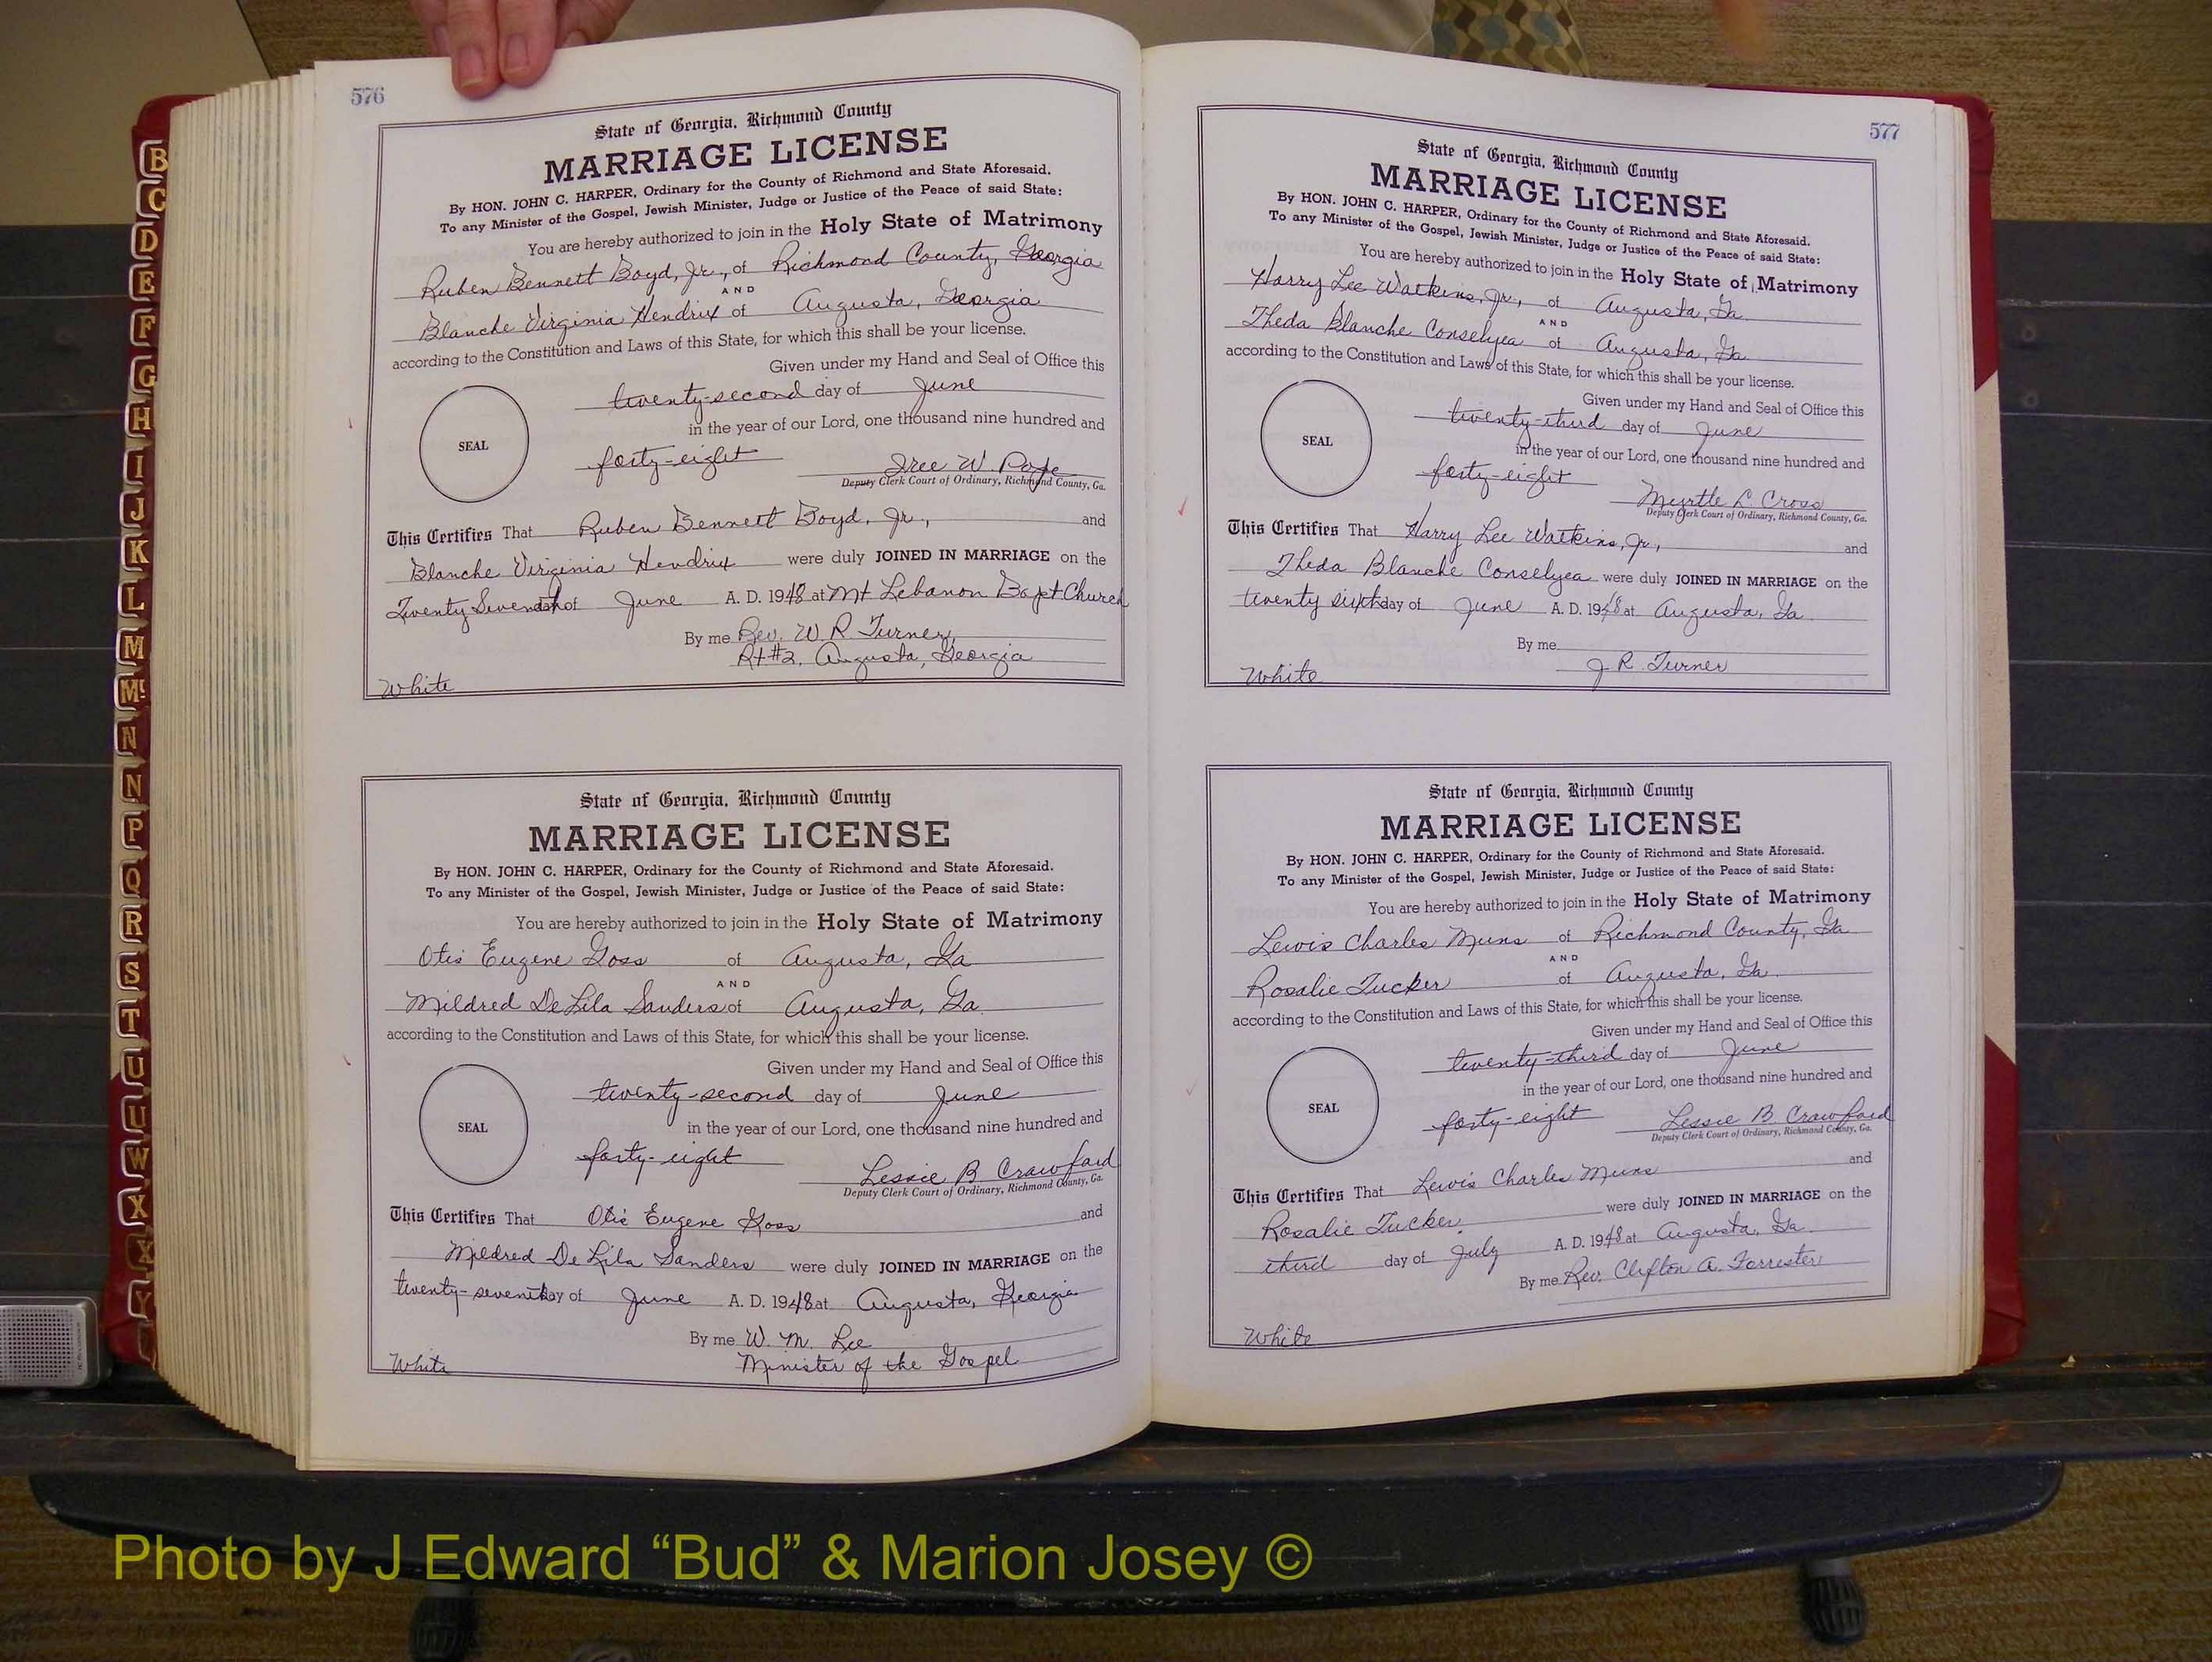 576
State of Georgia, Richmond County
MARRIAGE LICENSE
By HON. JOHN C. HARPER, Ordinary for the County of Richmond and State Aforesaid.
To any Minister of the Gospel, Jewish Minister, Judge or Justice of the Peace of said State:
You are hereby authorized to join in the Holy State of Matrimony
Ruben Bennett Boyd, Jr., of Richmond County, Georgia
AND
Blanche Virginia Hendrix of Augusta, Georgia
according to the Constitution and Laws of this State, for which this shall be your license.
Given under my Hand and Seal of Office this
twenty-second day of June
in the year of our Lord, one thousand nine hundred and
SEAL
forty-eight W. Pope
Deputy Clerk Court of Ordinary, Richmond County, Ga.
This Certifies That Ruben Bennett Boyd, Jr., and
Blanche Virginia Hendrix were duly JOINED IN MARRIAGE on the
Twenty of June A. D. 1948 at Mt Lebanon Bapt Church
By me Rev. W. R. Turner,
Rt #2, Augusta, Georgia
White
State of Georgia, Richmond County
MARRIAGE LICENSE
By HON. JOHN C. HARPER, Ordinary for the County of Richmond and State Aforesaid.
To any Minister of the Gospel, Jewish Minister, Judge or Justice of the Peace of said State:
You are hereby authorized to join in the Holy State of Matrimony
Otis Eugene Goss of Augusta, Ga
AND
Mildred De Lila Sanders of Augusta, Ga.
according to the Constitution and Laws of this State, for which this shall be your license.
Given under my Hand and Seal of Office this
twenty-second day of June
in the year of our Lord, one thousand nine hundred and
SEAL
forty-eight Lessie B Crawford
Deputy Clerk Court of Ordinary, Richmond County, Ga.
This Certifies That Otis Eugene Goss and
Mildred De Lila Sanders were duly JOINED IN MARRIAGE on the
twenty-seventh day of June A. D. 1948 at Augusta, Georgia
By me W. M. Lee
Minister of the Gospel
White
577
State of Georgia, Richmond County
MARRIAGE LICENSE
By HON. JOHN C. HARPER, Ordinary for the County of Richmond and State Aforesaid.
To any Minister of the Gospel, Jewish Minister, Judge or Justice of the Peace of said State:
You are hereby authorized to join in the Holy State of Matrimony
Harry Lee Watkins, Jr., of Augusta, Ga
AND
Theda Blanche Conselyea of Augusta, Ga
according to the Constitution and Laws of this State, for which this shall be your license.
Given under my Hand and Seal of Office this
twenty-third day of June
in the year of our Lord, one thousand nine hundred and
SEAL
forty-eight Myrtle L. Cross
Deputy Clerk Court of Ordinary, Richmond County, Ga.
This Certifies That Harry Lee Watkins, Jr., and
Theda Blanche Conselyea were duly JOINED IN MARRIAGE on the
twenty sixth day of June A. D. 1948 at Augusta, Ga.
By me
J. R. Turner
White
State of Georgia, Richmond County
MARRIAGE LICENSE
By HON. JOHN C. HARPER, Ordinary for the County of Richmond and State Aforesaid.
To any Minister of the Gospel, Jewish Minister, Judge or Justice of the Peace of said State:
You are hereby authorized to join in the Holy State of Matrimony
Lewis Charles Muns of Richmond County, Ga
AND
Rosalie Tucker of Augusta, Ga.
according to the Constitution and Laws of this State, for which this shall be your license.
Given under my Hand and Seal of Office this
twenty-third day of June
in the year of our Lord, one thousand nine hundred and
SEAL
forty-eight Lessie B Crawford
Deputy Clerk Court of Ordinary, Richmond County, Ga.
This Certifies That Lewis Charles Muns and
Rosalie Tucker were duly JOINED IN MARRIAGE on the
third day of July A. D. 1948 at Augusta, Ga
By me Rev. Clifton A. Forrester
White
B
C
D
E
F
G
H
I
J
K
L
M
Mc
N
N
P
Q
R
S
T
U
U
W
X
X
Y
Photo by J Edward “Bud” & Marion Josey ©